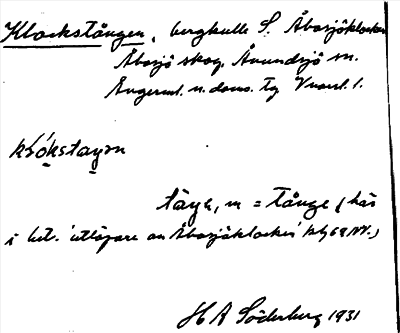 Klockstången, bergkulle S. Åbosjöklocken
Åbosjö skog, Anundsjö sn.
Ångerml. n. doms. Tg
klókstaŋən
m = Tånge (här
i bet. 'utlöpare av Åbosjöklocken'
H A Söderberg 1931